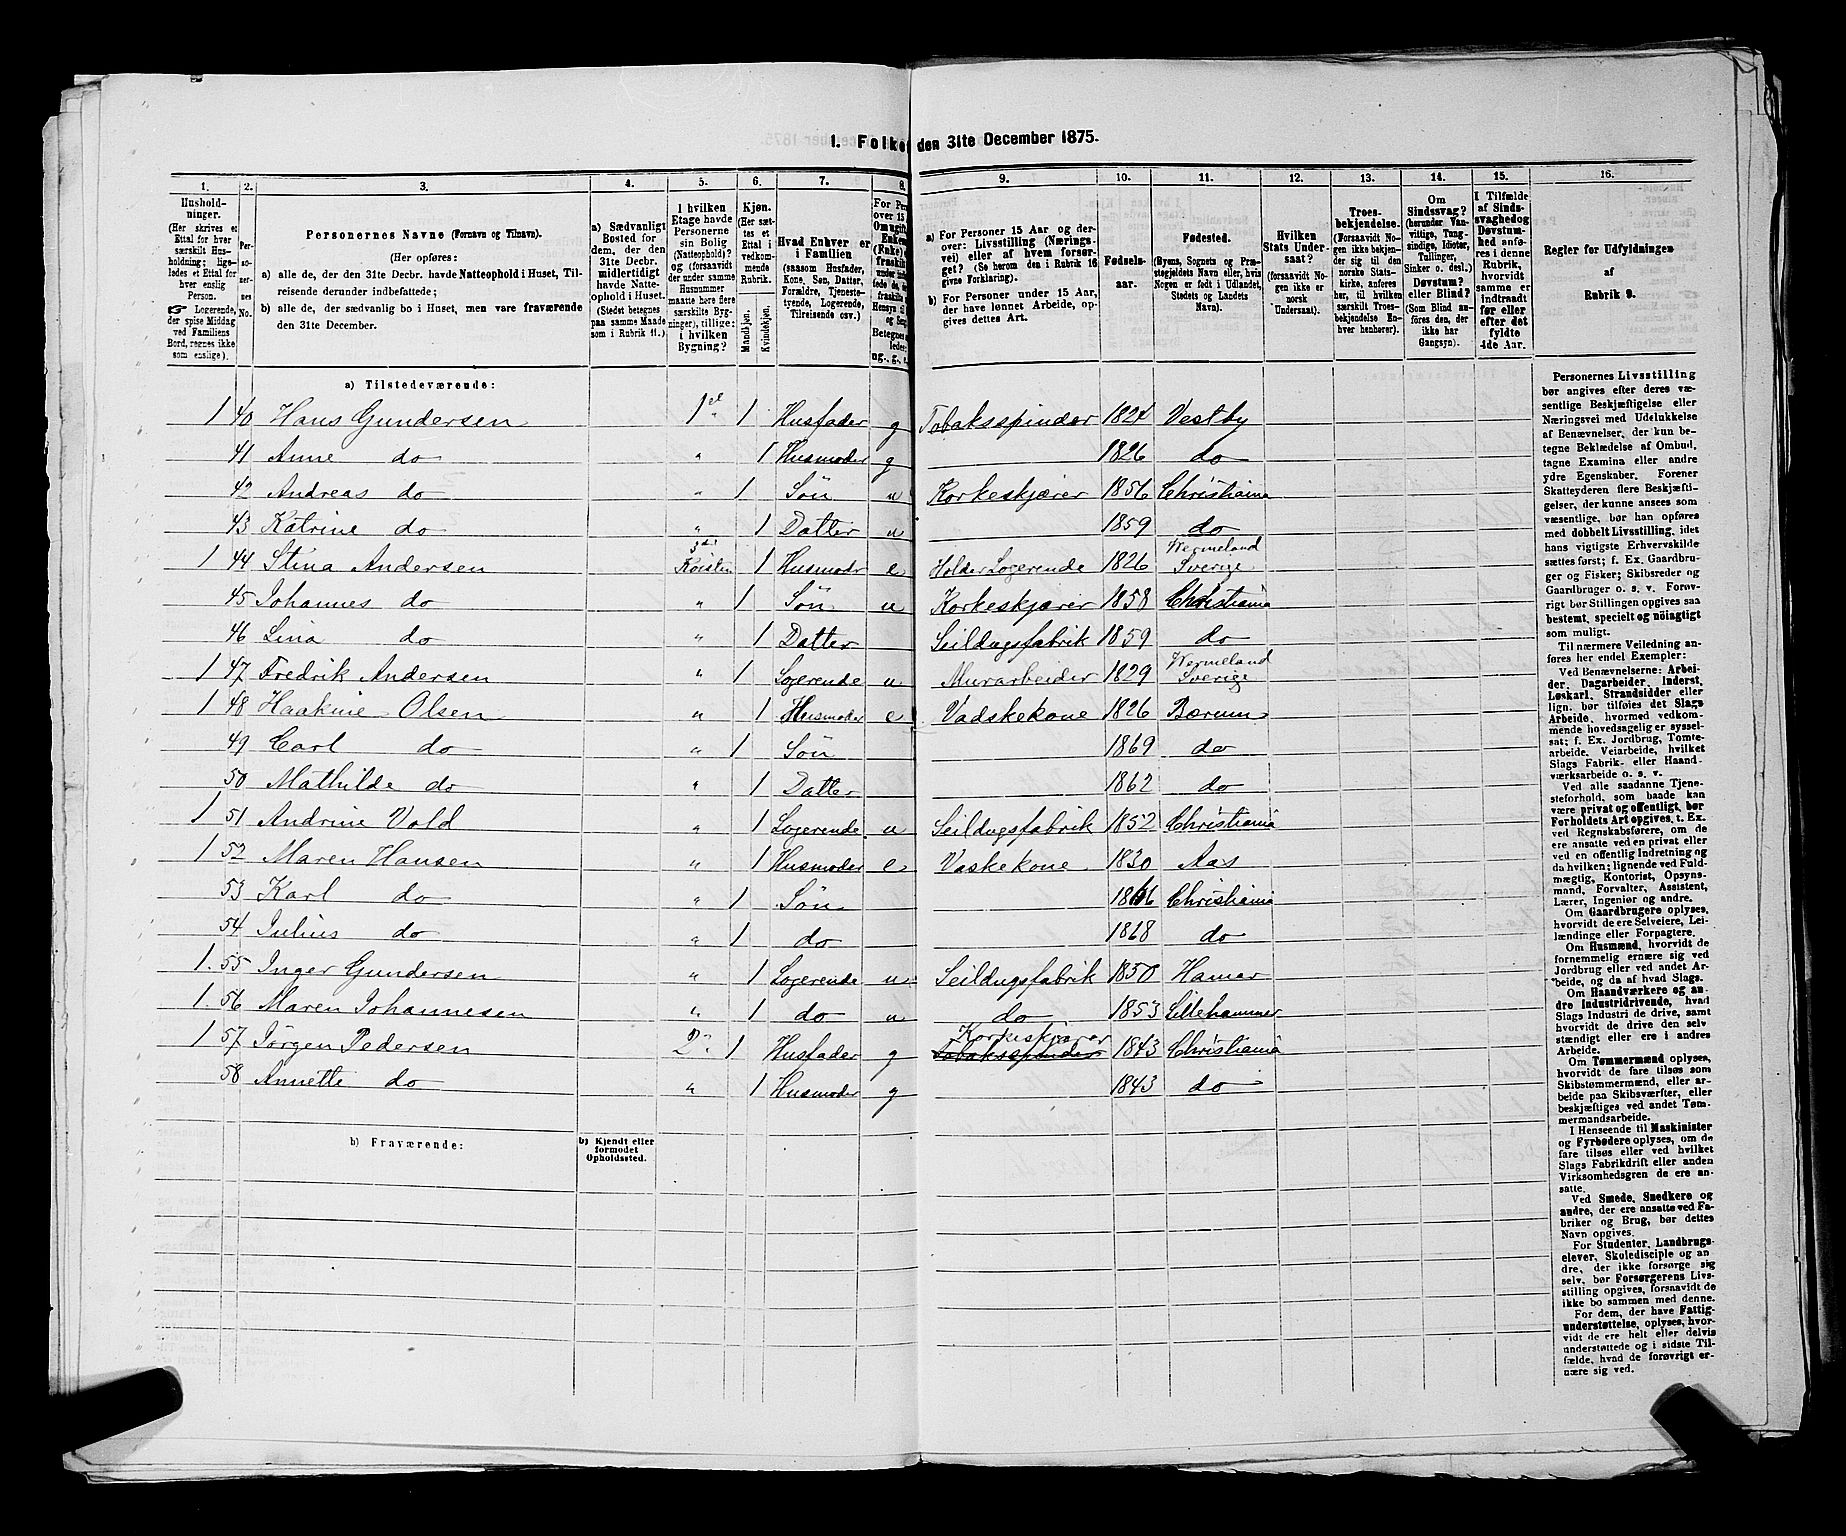 1. Folket den 31te December 1875.
1. 2. 3. 4. 5. 6. 7. 8. 9. 10. 11. 12. 13. 14. 15. 16.
Hushold-
ninger.
(Her skrives et
Ettal for hver
særskilt Hus-
holdning; lige-
ledes et Ettal for
hver enslig
Person.
☞ Logerende,
der spise Middag
ved Familiens
Bord, regnes ikke
som enslige).
Per-
so-
ner-
nes
No.
Personernes Navne (Fornavn og Tilnavn).
(Her opføres:
a) alle de, der den 31te Decbr. havde Natteophold i Huset, Til-
reisende derunder indbefattede;
b) alle de, der sædvanlig bo i Huset, men vare fraværende
den 31te December.
a) Sædvanligt
Bosted for
dem, der den
31te Decbr.
midlertidigt
havde Natte-
ophold i Huset.
(Stedet betegnes
paa samme Maade
som i Rubrik 11.)
I hvilken
Etage havde
Personerne
sin Bolig
(Natteophold)?
og (forsaavidt
der under samme
Husnummer
maatte høre flere
særskilte Byg-
ninger), tillige:
i hvilken
Bygning?
Kjøn.
(Her sæt-
tes et
Ettal i
vedkom-
mende
Rubrik.
Mandkjøn.
Kvindekjøn.
Hvad Enhver er
i Familien
(saasom Husfader,
Kone, Søn, Datter,
Forældre, Tjeneste-
tyende, Logerende,
Tilreisende osv.)
a) For Personer 15 Aar og der-
over: Livsstilling (Nærings-
vei) eller af hvem forsør-
get? (Se herom den i Rubrik 16
givne Forklaring).
b) For Personer under 15 Aar,
der have lønnet Arbeide, op-
gives dettes Art.
Fødsels-
aar.
Fødested.
(Byens, Sognets og Præ-
stegjeldets Navn eller, hvis
Nogen er født i Udlandet,
Stedets og Landets
Navn).
Hvilken
Stats Under-
saat?
(forsaavidt No-
gen ikke er
norsk
Undersaat).
Troes-
bekjendelse.
(Forsaavidt No-
gen ikke bekjen-
der sig til den
norske Stats-
kirke, anføres
her, til hvilken
særskilt Troes-
bekjendelse En-
hver henhører).
Om
Sindssvag?
(herunder Van-
vittige, Tung-
sindige, Idioter,
Tullinger,
Sinker o. desl.)
Døvstum?
eller Blind?
(Som Blind an-
føres den, der
ikke har
Gangsyn).
I Tilfælde
af Sinds-
svaghed og
Døvstum-
hed anfø-
res i denne
Rubrik,
hvorvidt
samme er
indtraadt
før eller
efter det
fyldte
4de Aar.
Regler for Udfyldningen
af
Rubrik 9.
a) Tilstedeværende:
1 40 Hans Gundersen 1st " 1 Husfader g Tobaksspinder 1824 Vestby
41 Anne do " 1 Husmoder g 1826 do
42 Andreas do " 1 Søn u Korkeskjærer 1856 Christiania
43 Katrine do " 1 Datter u 1859 do
1 44 Stina Andersen 1 Husmodr e Holder Logerende 1826 Wermeland Sverige
45 Johannes do " 1 Søn u Korkeskjærer 1858 Christiania
46 Lina do " 1 Datter Seildugsfabrik 1859 do
1 47 Fredrik Andersen " 1 Logerende u Murarbeider 1829 Wermeland Sverige
1 48 Haakine Olsen " 1 Husmoder e Vadskekone 1826 Bærum
49 Carl do " 1 Søn 1869 do
50 Mathilde do " 1 Datter 1862 do
1 51 Andrine Vold " 1 Logerende u Seildugsfabrik 1852 Christiania
1 52 Maren Hansen " 1 Husmoder e Vaskekone 1830 Aas
53 Karl do " 1 Søn 1866 Christiania
54 Julius do " 1 do 1868 do
1. 55 Inger Gundersen " 1 Logerende u Seildugsfabrik 1850 Hamar
1. 56 Maren Johannesen " 1 do u do 1853 Lillehammer
1 57 Jørgen Pedersen 2n 1 Husfader g Korkeskjærer Tobaksspinder 1843 Christiania
58 Annette do " 1 Husmoder g 1843 do
b) Fraværende:
b) Kjendt eller
formodet
Opholdssted.
Personernes Livsstilling
bør angives efter deres væ-
sentlige Beskjæftigelse eller
Næringsvei med Udelukkelse
af Benævnelser, der kun be-
tegne Beklædelse af Ombud,
tagne Examina eller andre
ydre Egenskaber. Forener
Skatteyderen flere Beskjæfti-
gelser, der kunne ansees som
væsentlige, bør han opføres
med dobbelt Livsstilling, idet
hans vigtigste Erhvervskilde
sættes først; f. Ex. Gaardbru-
ger og Fisker; Skibsreder og
Gaardbruger o. s. v. Forøv-
rigt bør Stillingen opgives saa
bestemt, specielt og nöiagtigt
som muligt.
Til nærmere Veiledning an-
føres her endel Exempler:
Ved Benævnelserne: Arbei-
der, Dagarbeider, Inderst,
Løskarl, Strandsidder eller
lign. bør tilføies det Slags
Arbeide, hvormed vedkom-
mende hovedsagelig er syssel-
sat; f. Ex. Jordbrug, Tomte-
arbeide, Veiarbeide, hvilket
Slags Fabrik- eller Haand-
værksarbeide o. s. v.
Ved alle saadanne Tjene-
steforhold, som baade kan
være privat og offentligt, bør
Forholdets Art opgives, t. Ex.
ved Regnskabsførere, om de
ere ansatte ved en privat eller
ved en offentlig Indretning og
da hvilken; lignende ved Fuld-
mægtig, Kontorist, Opsyns-
mand, Forvalter, Assistent,
Lærer, Ingeniør og andre.
Om Gaardbrugere oplyses,
hvorvidt de ere Selveiere, Lei-
lændinge eller Forpagtere.
Om Husmænd, hvorvidt de
fornemmelig ernære sig ved
Jordbrug eller ved andet Ar-
beide, og da af hvad Slags.
Om Haandværkere og an-
dre Industridrivende, hvad
Slags Industri de drive, samt
hvorvidt de drive den selv
stændigt eller ere i andres
Arbeide.
Om Tømmermænd oplyses,
hvorvidt de fare tilsøs som
Skibstømmermænd, eller ar-
beide paa Skibsværfter, eller
beskjæftiges ved andet Tøm-
mermandsarbeide.
I Henseende til Maskinister
og Fyrbødere oplyses, om de
fare tilsøs eller ved hvilket
Slags Fabrikdrift eller anden
Virksomhedsgren de ere an-
satte.
Ved Smede, Snedkere og
andre, der ere ansatte ved Fa-
briker og Brug, bør dettes
Navn opgives.
For Studenter, Landbrugs-
elever, Skoledisciple og an
dre, der ikke forsørge sig
selv, bør Forsørgerens Livs-
stilling opgives, forsaavidt de
ikke bo sammen med denne.
For dem, der have Fattig-
understøttelse, oplyses, hvor-
vidt de ere helt eller delvis
understøttede og i sidste Til-
fælde, hvad de forøvrigt er-
nære sig ved.